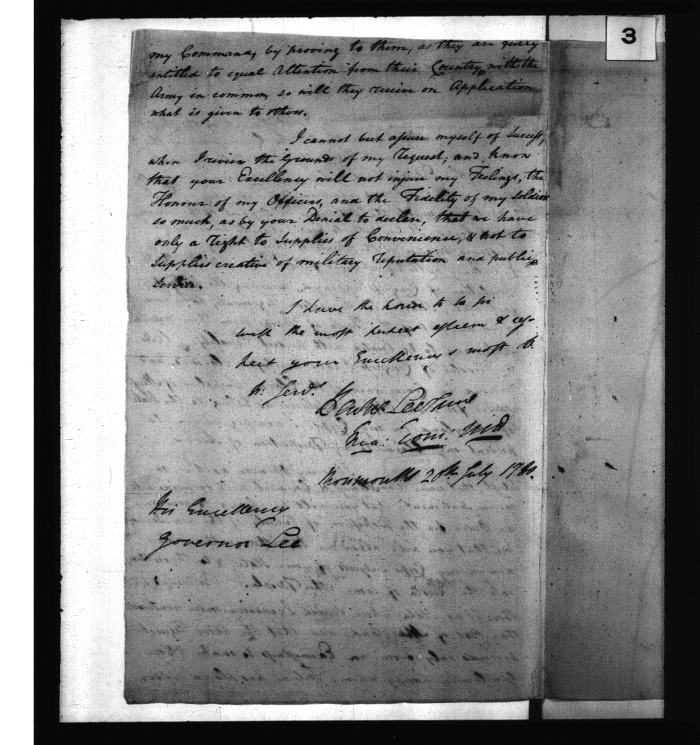 3
my Command, by proving to them, as they are
entitled to equal Attention from their Country with the
Army in common so will they receive on Application
what is given to others.
I cannot but assure myself of Success,
when I review the Grounds of my request; and know
that your Excellency will not injure my Feelings, the
Honour of my Officers, and the Fidelity of my Soldiers
so much, as by your Denial to declare, that we have
only a right to Supplies of Convenience, & not to
Supplies creative of military reputation and public
Service.
I have the honor to be sir
with the most perfect esteem & res
pect your Excellencys most ob
h. Servt.
Lee Junr
Com.
Monmouth 20th July 1780.
His Excellency
Governor Lee